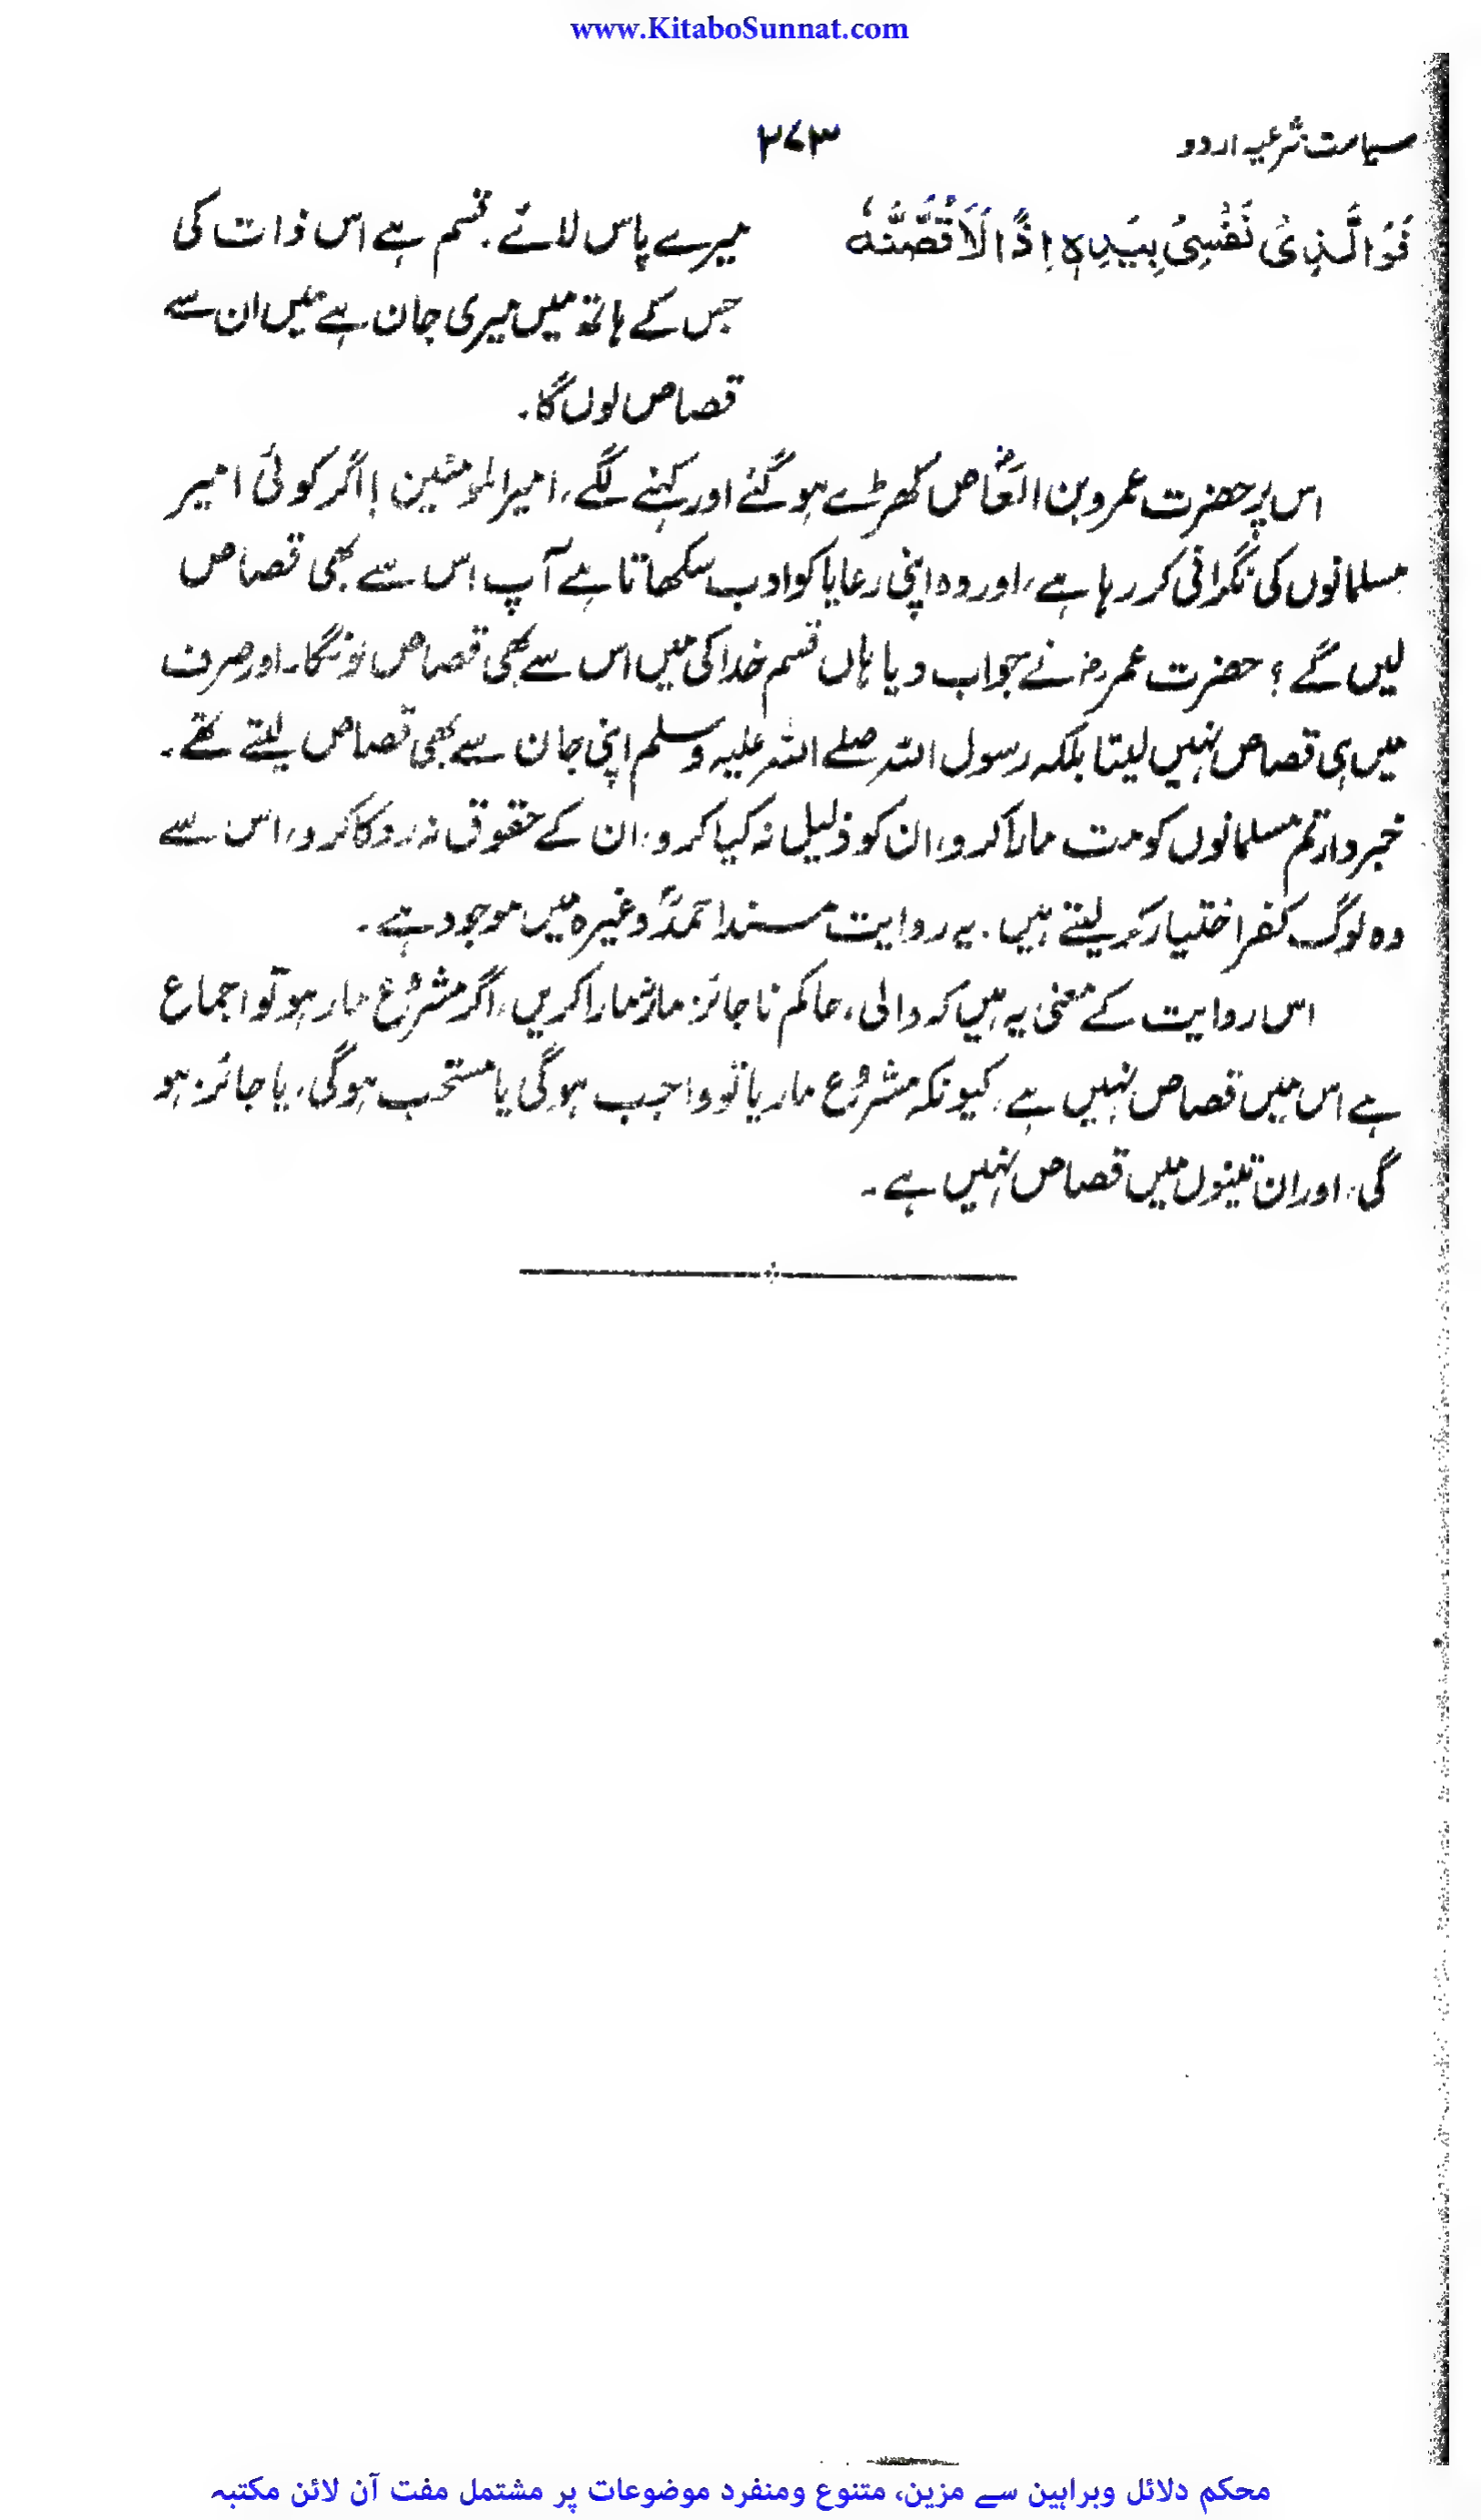 www.KitaboSunnat.com
سیاست شرعیہ اردو
۳۷۳
فَوَالَّذِیْ نَفْسِیْ بِیَدِہٖ اِذًا لَاَ قُصَّنَّہٗ
میرے پاس لائے۔ قسم ہے اس ذات کی
جس کے ہاتھ میں میری جان ہے میں ان سے
قصاص لوں گا۔
اس پر حضرت عمرو بن العاصؓ کھڑے ہو گئے اور کہنے لگے، امیر المؤمنین! اگر کوئی امیر
مسلمانوں کی نگرانی کر رہا ہے، اور وہ اپنی رعایا کو ادب سکھاتا ہے آپ اس سے بھی قصاص
لیں گے؟ حضرت عمرؓ نے جواب دیا ہاں قسم خدا کی میں اس سے بھی قصاص لونگا۔ اور صرف
میں ہی قصاص نہیں لیتا بلکہ رسول اللہ صلے اللہ علیہ وسلم اپنی جان سے بھی قصاص لیتے تھے۔
خبردار تم مسلمانوں کو مت مارا کرو، ان کو ذلیل نہ کیا کرو، ان کے حقوق نہ روکا کرو، اس سے
وہ لوگ کفر اختیار کر لیتے ہیں۔ یہ روایت مسند احمدؒ وغیرہ میں موجود ہے۔
اس روایت کے معنی یہ ہیں کہ والی، حاکم ناجائز مار نہ مارا کریں، اگر مشروع مار ہو تو اجماع
ہے اس میں قصاص نہیں ہے، کیونکہ مشروع مار یا تو واجب ہوگی یا مستحب ہوگی، یا جائز ہو
گی، اور ان تینوں میں قصاص نہیں ہے۔
محکم دلائل وبراہین سے مزین، متنوع ومنفرد موضوعات پر مشتمل مفت آن لائن مکتبہ